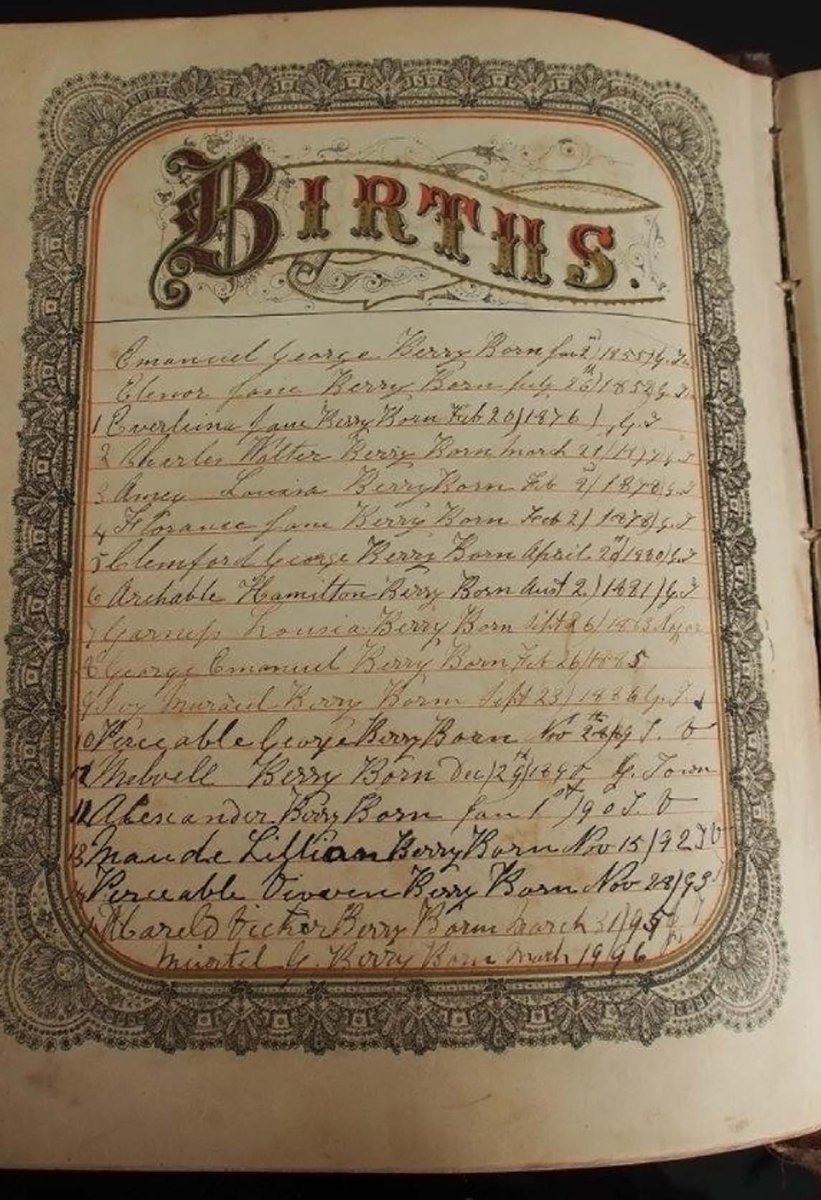 BIRTHS.
Emanuel George Berry Born Jan 2) 1855) G.T.
Elenor Jane Berry Born July 26th) 1858 G.T.
1 Everleina Jane Berry Born Feb 20) 1876 ) G.T
2 Charles Walter Berry Born March 21/1877 G.T
3 Amey Louisa Berry Born Feb 2) 1878) G.T
4 Florance Jane Berry Born Feb 2) 1878) G.T
5 Clemford George Berry Born April 2nd) 1880) G.T
6 Archable Hamilton Berry Born Aust 2.) 1881) G.T
7 Lousia Berry Born Sept 26) 1863
8 George Emanuel Berry Born Feb 26/1885
9 Ivy Berry Born Sept 23) 1886 G.T.
10 Perceable George Berry Born Nov T. V
Melvell Berry Born Dec) 29th) 1890 G. Town
Alexander Berry Born Jan 1st) 90 T. V
13 Maude Lillian Berry Born Nov 15) 92 T V
14 Perceable Viowen Berry Born Nov 28) 93
Hareld Victer Berry Born March 31) 95
G. Berry Born March 1996